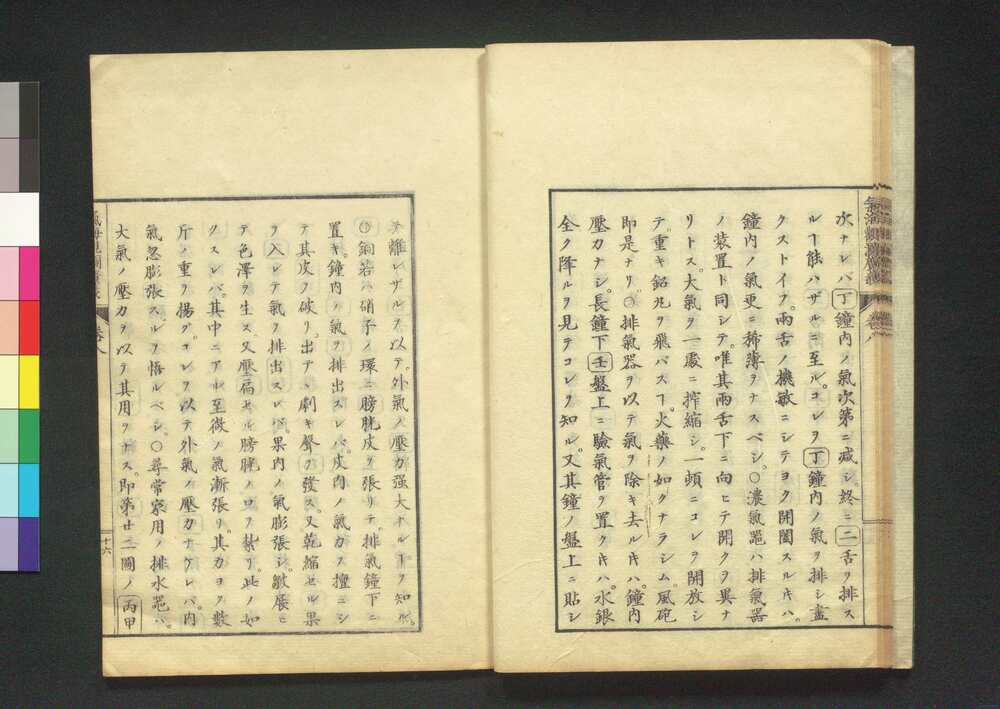 氣海觀瀾廣義 卷八
次ナレバ丁鐘内ノ氣次第ニ减シ。終ニ二舌ヲ排ス
ルヿ能ハザルニ至ル。コレヲ丁鐘内ノ氣ヲ排シ盡
クストイフ。兩舌ノ機敏ニシテヨク開闔スルキハ。
鐘内ノ氣更ニ稀薄ヲナスベシ。○濃氣噐ハ排氣器
ノ装置ト同シテ。唯其兩舌下ニ向ヒテ開クヲ異ナ
リトス。大氣ヲ一處ニ搾縮シ。一頓ニコレヲ開放シ
テ。重キ鉛丸ヲ飛バスヿ。火藥ノ如クナラシム。風砲
即是ナリ。○排氣器ヲ以テ氣ヲ除キ去ルキハ。鐘内
壓力ナシ。長鐘下壬盤上ニ驗氣管ヲ置クキハ。水銀
全ク降ルヲ見テコレヲ知ル。又其鐘ノ盤上ニ貼シ
テ離レザルヲ以テ。外氣ノ壓力强大ナルヿヲ知ル。
○銅若ハ硝子ノ環ニ膀胱皮ヲ張リテ。排氣鐘下ニ
置キ。鐘内ノ氣ヲ排出スレバ。皮内ノ氣力ヲ擅ニシ
テ其皮ヲ破リ。出テヽ劇キ聲ヲ發ス。又乾縮セル果
ヲ入レテ氣ヲ排出スレバ。果内ノ氣膨張シ。皺展ヒ
テ色澤ヲ生ス。又壓扁セル膀胱ノ口ヲ紮リ。此ノ如
クスレバ。其中ニアル至微ノ氣漸張リ。其力ヨク數
斤ノ重ヲ揚グ。コレヲ以テ外氣ノ壓力ナケレバ。内
氣忽膨張スルヲ悟ルベシ。○尋常家用ノ排水噐ハ。
大氣ノ壓力ヲ以テ其用ヲナス。即第廿二圖ノ丙甲
卷八
十六